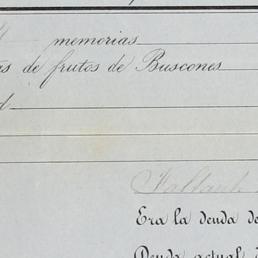 memorias
as de frutos de Buscones
d
Era la deuda de
Deuda actual d